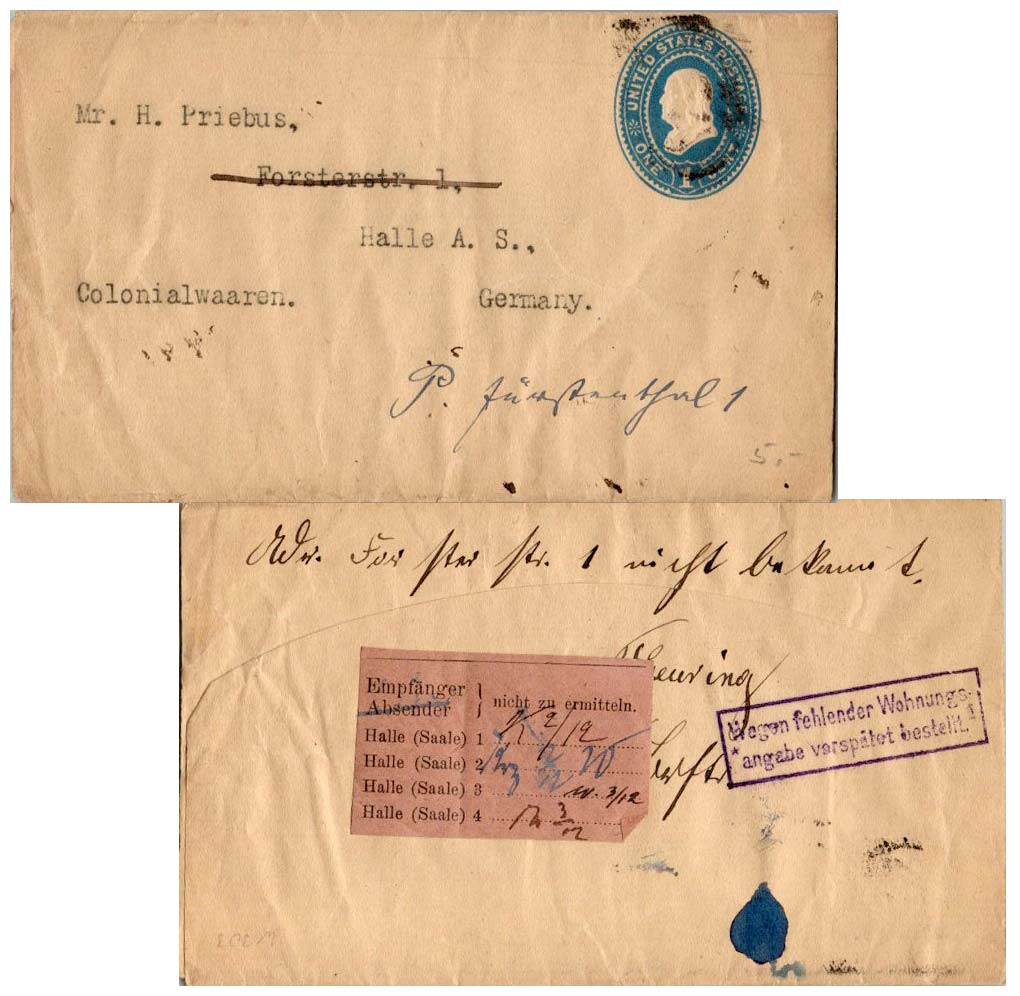 UNITED STATES POSTAGE
ONE CENT
1
Mr. H. Priebus,
Forsterstr. 1,
Halle A. S.,
Colonialwaaren.
Germany.
P. Fürstenthal 1
5.-
Adr. Forsterstr. 1 nicht bekannt.
Empfänger
Absender
nicht zu ermitteln.
Halle (Saale) 1 2/12
Halle (Saale) 2
Halle (Saale) 3 3/12
Halle (Saale) 4 3/12
Wegen fehlender Wohnungs-
* angabe verspätet bestellt. 1